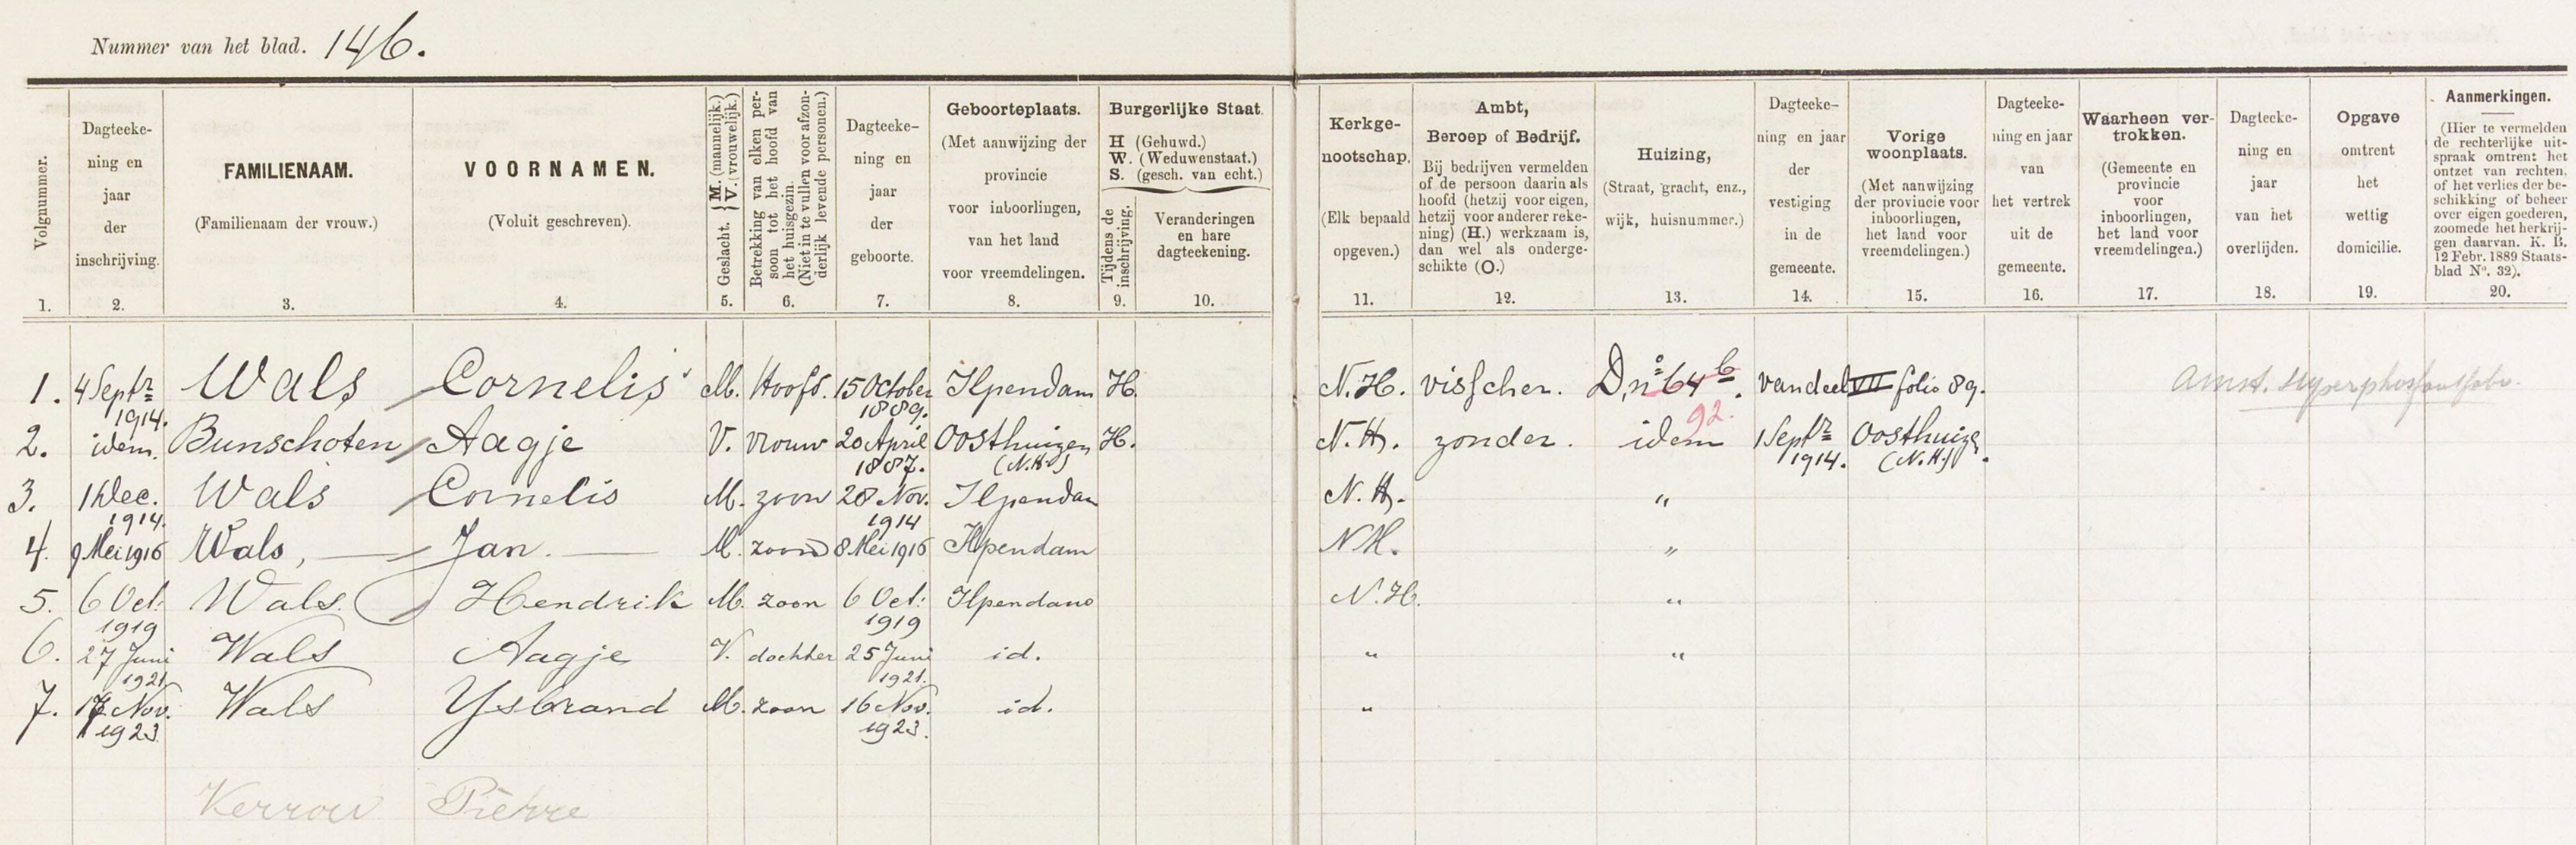 Nummer van het blad. 146.
Volgnummer. 1.
Dagteeke-
ning en
jaar
der
inschrijving.
2.
FAMILIENAAM.
(Familienaam der vrouw.)
3.
VOORNAMEN.
(Voluit geschreven).
4.
Geslacht. { M. (mannelijk.)
V. (vrouwelijk.)
5.
Betrekking van elken per-
soon tot het hoofd van
het huisgezin.
(Niet in te vullen voor afzon-
derlijk levende personen.)
6.
Dagteeke-
ning en
jaar
der
geboorte.
7.
Geboorteplaats.
(Met aanwijzing der
provincie
voor inboorlingen,
van het land
voor vreemdelingen.
8.
Burgerlijke Staat.
H (Gehuwd.)
W. (Weduwenstaat.)
S. (gesch. van echt.)
Tijdens de
inschrijving.
9.
Veranderingen
en hare
dagteekening.
10.
Kerkge-
nootschap.
(Elk bepaald
opgeven.)
11.
Ambt,
Beroep of Bedrijf.
Bij bedrijven vermelden
of de persoon daarin als
hoofd (hetzij voor eigen,
hetzij voor anderer reke-
ning) (H.) werkzaam is,
dan wel als onderge-
schikte (O.)
12.
Huizing,
(Straat, gracht, enz.,
wijk, huisnummer.)
13.
Dagteeke-
ning en jaar
der
vestiging
in de
gemeente.
14.
Vorige
woonplaats.
(Met aanwijzing
der provincie voor
inboorlingen,
het land voor
vreemdelingen.)
15.
Dagteeke-
ning en jaar
van
het vertrek
uit de
gemeente.
16.
Waarheen ver-
trokken.
(Gemeente en
provincie
voor
inboorlingen,
het land voor
vreemdelingen.)
17.
Dagteeke-
ning en
jaar
van het
overlijden.
18.
Opgave
omtrent
het
wettig
domicilie.
19.
Aanmerkingen.
(Hier te vermelden
de rechterlijke uit-
spraak omtrent het
ontzet van rechten,
of het verlies der be-
schikking of beheer
over eigen goederen,
zoomede het herkrij-
gen daarvan. K. B.
12 Febr. 1889 Staats-
blad No. 32).
20.
1. 4 Septr 1914. Wals Cornelis M. Hoofd. 15 October 1889. Ilpendam H. N.H. visscher. D, no 64b. 92. van deel VII folio 89. Amst.
2. idem. Bunschoten Aagje V. vrouw 20 April 1887. Oosthuizen (N.H.) H. N.H. zonder. idem 1 Septr 1914. Oosthuizen (N.H.).
3. 1 Dec. 1914. Wals Cornelis M. zoon 28 Nov. 1914 Ilpendam N.H. "
4. 9 Mei 1916 Wals, Jan. M. zoon 8 Mei 1916 Ilpendam N.H. "
5. 6 Oct. 1919 Wals. Hendrik M. zoon 6 Oct. 1919 Ilpendam N.H. "
6. 27 Juni 1921. Wals Aagje V. dochter 25 Juni 1921. id. " "
7. 17 Nov. 1923. Wals Ysbrand M. zoon 16 Nov. 1923. id. "
Pierre